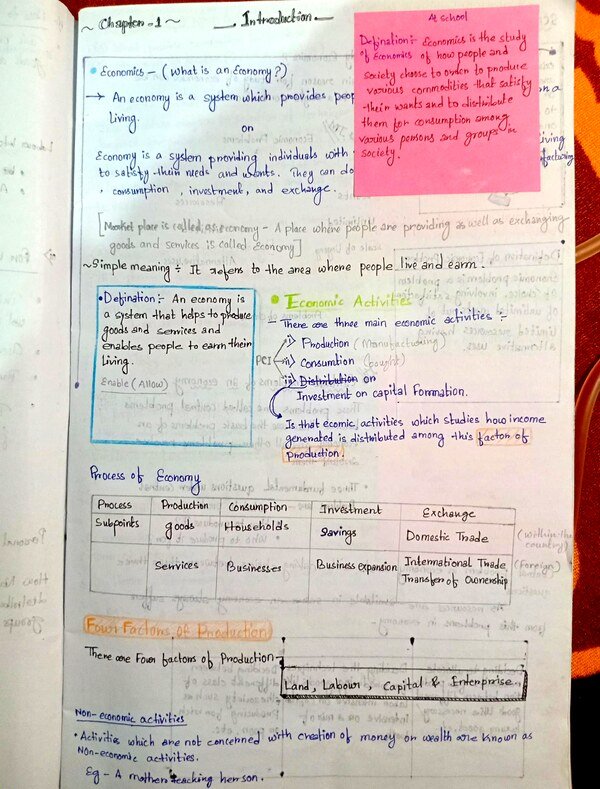 ~ Chapter - 1 ~
Introduction
At school
Defination:- Economics is the study
of Economics of how people and
society choose to order to produce
various commodities that satisfy
their wants and to distribute
them for consumption among
various persons and groups in
society.
• Economics - (What is an Economy?)
→ An economy is a system which provides peop
living.
or
Economy is a system providing individuals with
to satisfy their needs and wants. They can do
• consumption, investment, and exchange.
on a
living
[Market place is called as economy - A place where people are providing as well as exchanging
goods and services is called Economy]
~ Simple meaning ÷ It refers to the area where people live and earn.
• Defination:- An economy is
a system that helps to produce
goods and services and
enables people to earn their
living.
Enable (Allow)
• Economic Activities
- There are three main economic activities :-
PCI
i) Production (Manufacturing)
ii) Consumtion (bought)
iii) Distribution or
Investment on capital Formation.
Is that ecomic activities which studies how income
generated is distributed among this factor of
production.
Process of Economy
Process Production Consumption Investment Exchange
Subpoints goods Households Savings Domestic Trade (within the country)
Services Businesses Business expansion International Trade, (foreign)
Transfer of Ownership
Four Factors of Production
There are Four factors of Production -
Land, Labour, Capital & Enterprise.
Non-economic activities
• Activities which are not concerned with creation of money or wealth are known as
Non-economic activities.
Eg - A mother teaching her son.